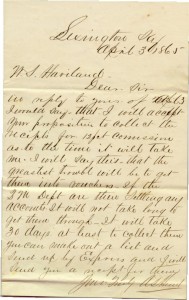 Lexington Ky
April 3 1865
W. S. Haviland
Dear Sir
in reply to yours of
I would say that I will accept
your proposition to collect the
receipts for
as to the time it will take
me. I will say this that the
greatest trouble will be to get
them into vouchers. If the
Q M Dept are there settling any
accounts it will not take long to
get them through. It will take
30 days at least to collect them
you can make out a list and
send up by Express and I will
send you a receipt for them
Yours Truly